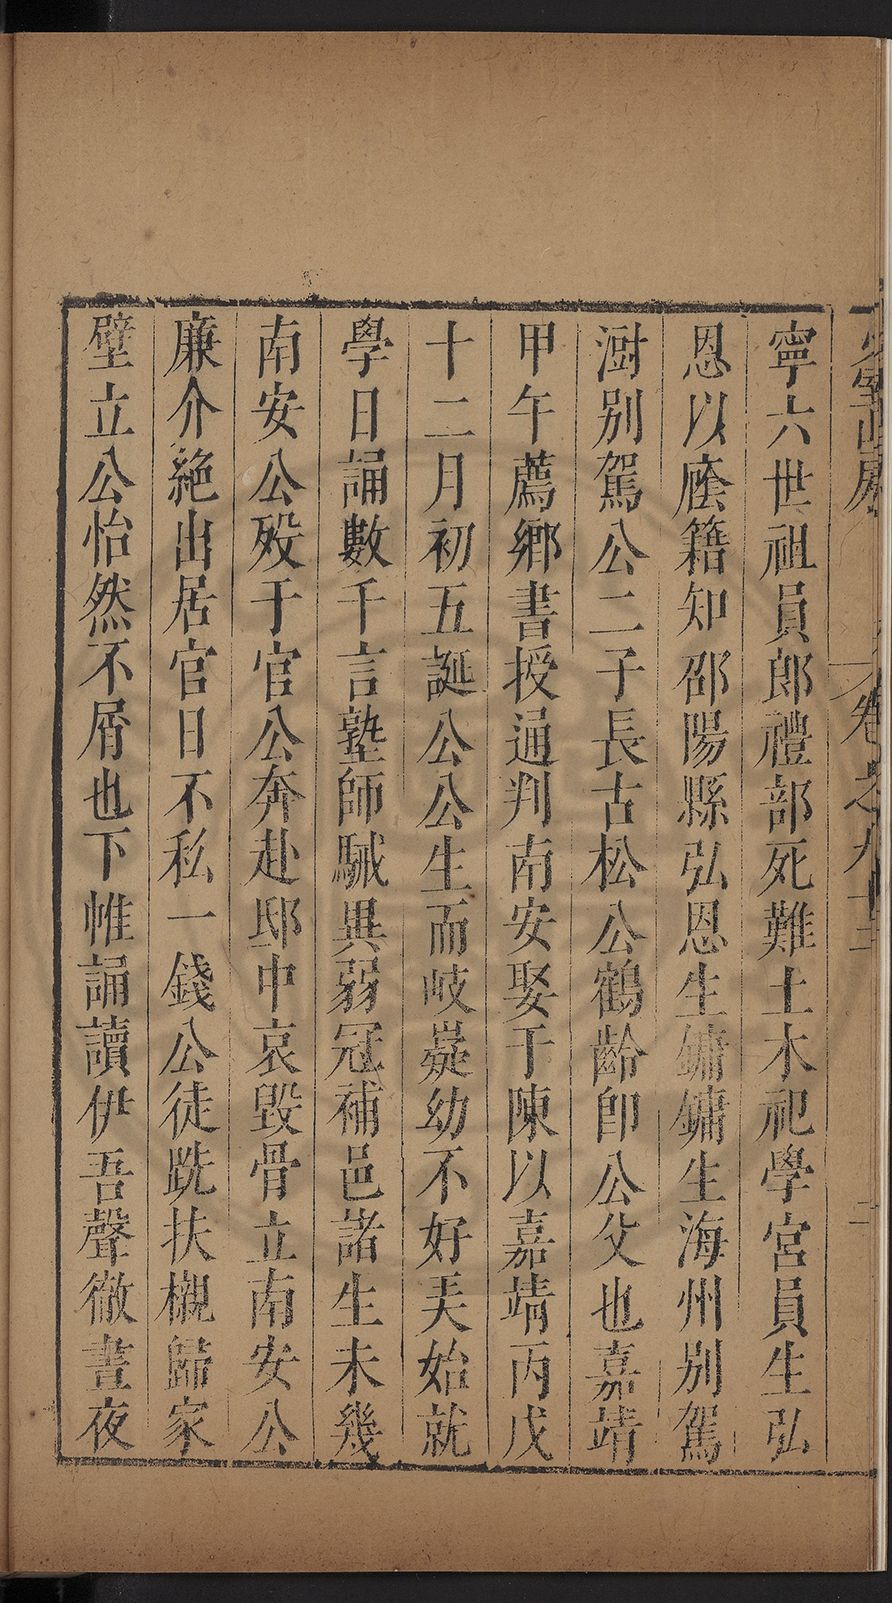 卷之九十三
寧六世祖員郎禮部死難土木祀學宮員生弘
恩以廕籍知邵陽縣弘恩生鏞鏞生海州別駕
澍別駕公二子長古松公鶴齡即公父也嘉靖
甲午薦鄉書授通判南安娶于陳以嘉靖丙戌
十二月初五誕公公生而岐嶷幼不好美始就
學日誦數千言塾師駴異弱冠補邑諸生未幾
南安公歿于官公奔赴邸中哀毀骨立南安公
廉介絕出居官日不私一錢公徒跣扶櫬歸家
壁立公怡然不屑也下帷誦讀伊吾聲徹晝夜